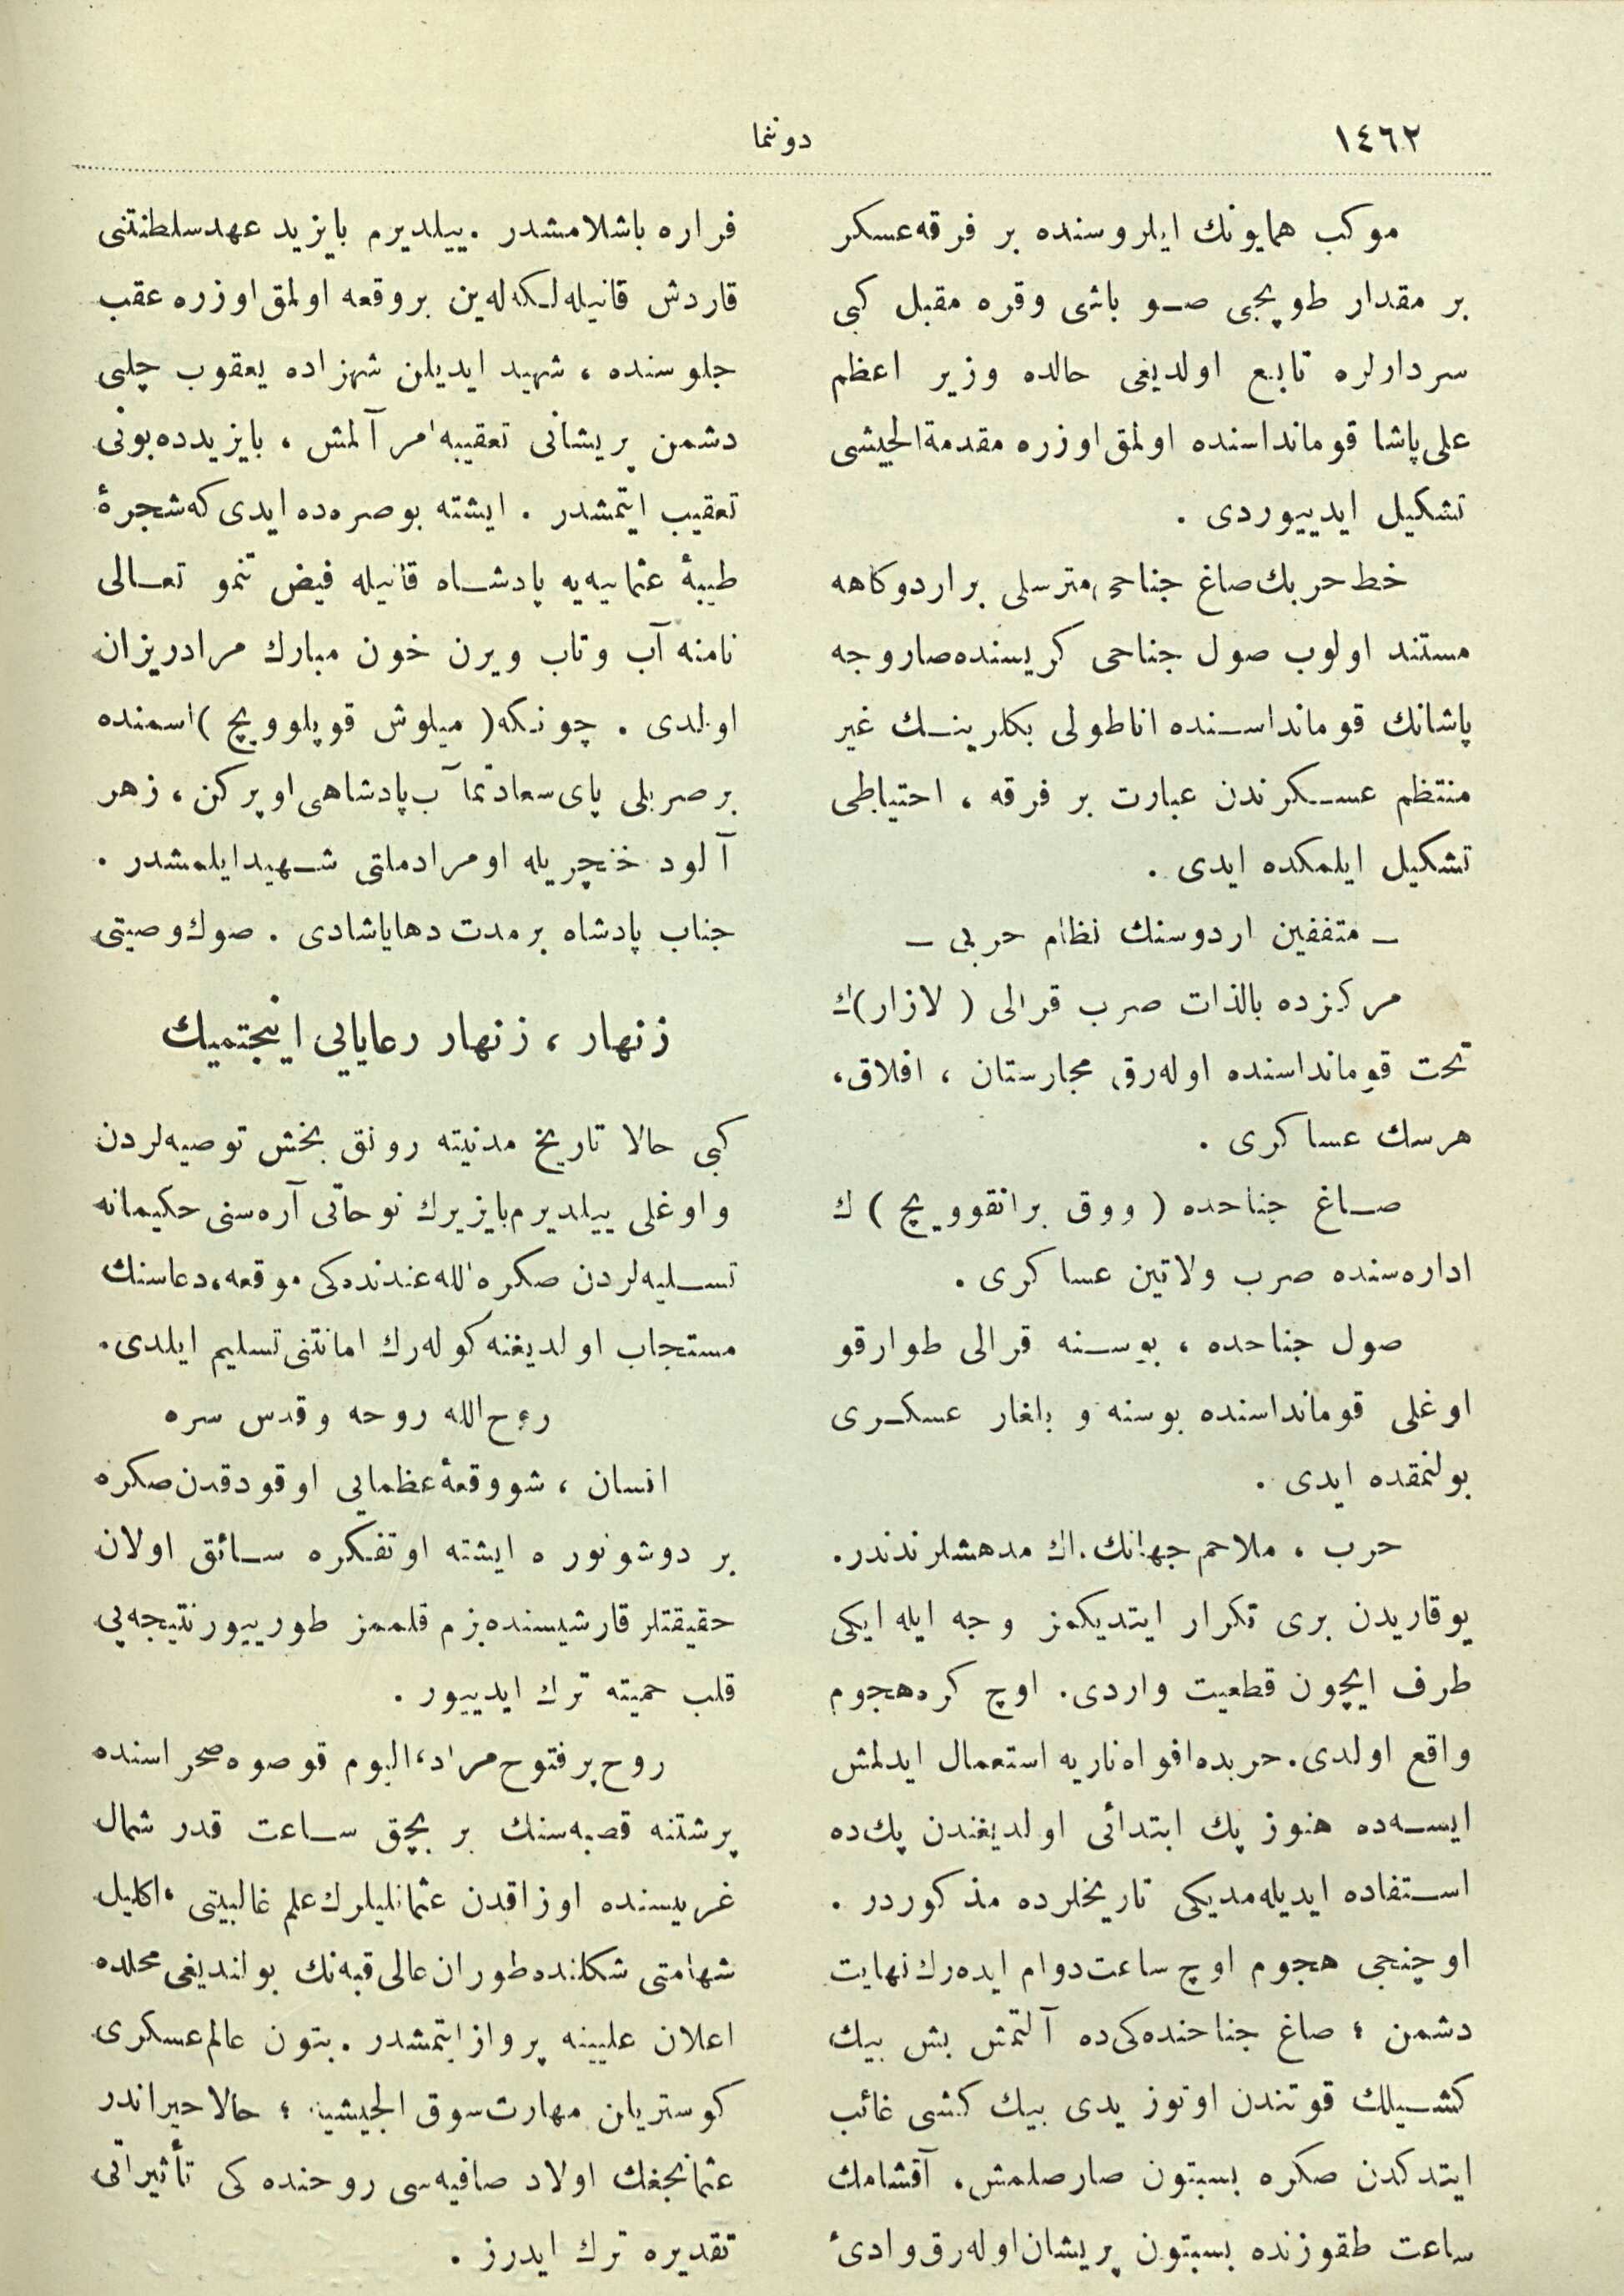 ١٤٦٢
دوننما
موكب همايونك ايلروسنده بر فرقه عسكر
بر مقدار طوپجى صو باشى وقره مقبل كبى
سردارلره تابع اولديغى حالده وزير اعظم
على پاشا قومانداسنده اولمق اوزره مقدمة الجيشى
تشكيل ايدييوردى .
خط حربك صاغ جناحى مترسلى بر اردوكاهه
مستند اولوب صول جناحى كريسنده صاروجه
پاشانك قومانداسنده اناطولى بكلرينك غير
منتظم عسكرندن عبارت بر فرقه ، احتياطى
تشكيل ايلمكده ايدى .
ـ متفقين اردوسنك نظام حربى ـ
مركزده بالذات صرب قرالى ( لازار )ك
تحت قومانداسنده اوله‌رق مجارستان ، افلاق ،
هرسك عساكرى .
صاغ جناحده ( ووق برانقوويچ ) ك
اداره‌سنده صرب ولاتين عساكرى .
صول جناحده ، بوسنه قرالى طوارقو
اوغلى قومانداسنده بوسنه و بلغار عسكرى
بولنمقده ايدى .
حرب ، ملاحم جهانك اك مدهشلرندندر.
يوقاريدن برى تكرار ايتديكمز وجه ايله ايكى
طرف ايچون قطعيت واردى. اوچ كره هجوم
واقع اولدى. حربده افواه ناريه استعمال ايدلمش
ايسه‌ده هنوز پك ابتدائى اولديغندن پك ده
استفاده ايديله‌مديكى تاريخلرده مذكوردر .
اوچنجى هجوم اوچ ساعت دوام ايده‌رك نهايت
دشمن ؛ صاغ جناحنده‌كى ده آلتمش بش بيك
كشيلك قوتندن اوتوز يدى بيك كشى غائب
ايتدكدن صكره بسبتون صارصلمش، آقشامك
ساعت طقوزنده بسبتون پريشان اوله‌رق وادئ
فراره باشلامشدر . ييلديرم بايزيد عهد سلطنتنى
قاردش قانيله لكه‌له‌ين بروقعه اولمق اوزره عقب
جلوسنده ، شهيد ايديلن شهزاده يعقوب چلبى
دشمن پريشانى تعقيبه امر آلمش ، بايزيدده بونى
تعقيب ايتمشدر . ايشته بوصره‌ده ايدى كه شجرۀ
طيبۀ عثمانيه‌يه پادشاه قانيله فيض نمو تعالى
نامنه آب وتاب ويرن خون مبارك مرادريزان
اولدى . چونكه ( ميلوش قوپلوويچ ) اسمنده
بر صربلى پاى سعادتمآب پادشاهى اوپركن ، زهر
آلود خنچريله او مراد ملتى شهيد ايلمشدر .
جناب پادشاه بر مدت دها ياشادى . صوك وصيتى
زنهار ، زنهار رعايايى اينجتميك
كبى حالا تاريخ مدنيته رونق بخش توصيه‌لردن
و اوغلى ييلديرم بايزيرك نوحاتى آره‌سنى حكيمانه
تسليه‌لردن صكره الله عندنده‌كى موقعه، دعاسنك
مستجاب اولديغنه كوله‌رك امانتنى تسليم ايلدى.
روح الله روحه وقدس سره
انسان ، شو وقعۀ عظمايى اوقودقدن صكره
بر دوشونور ه ايشته او تفكره سائق اولان
حقيقتلر قارشيسنده بزم قلممز طورييور نتيجه‌يى
قلب حميته ترك ايدييور .
روح پر فتوح مراد ، اليوم قوصوه صحراسنده
پرشتنه قصبه‌سنك بر بچق ساعت قدر شمال
غربيسنده اوزاقدن عثمانليلرك علم غالبيتى ، اكليل
شهامتى شكلنده طوران عالى قبه‌نك بولنديغى محلده
اعلان عليينه پرواز ايتمشدر . بتون عالم عسكرى
كوستريلن مهارت سوق الجيشيه ؛ حالا حيراندر
عثمانجغك اولاد صافيه‌سى روحنده كى تأثيراتى
تقديره ترك ايدرز .